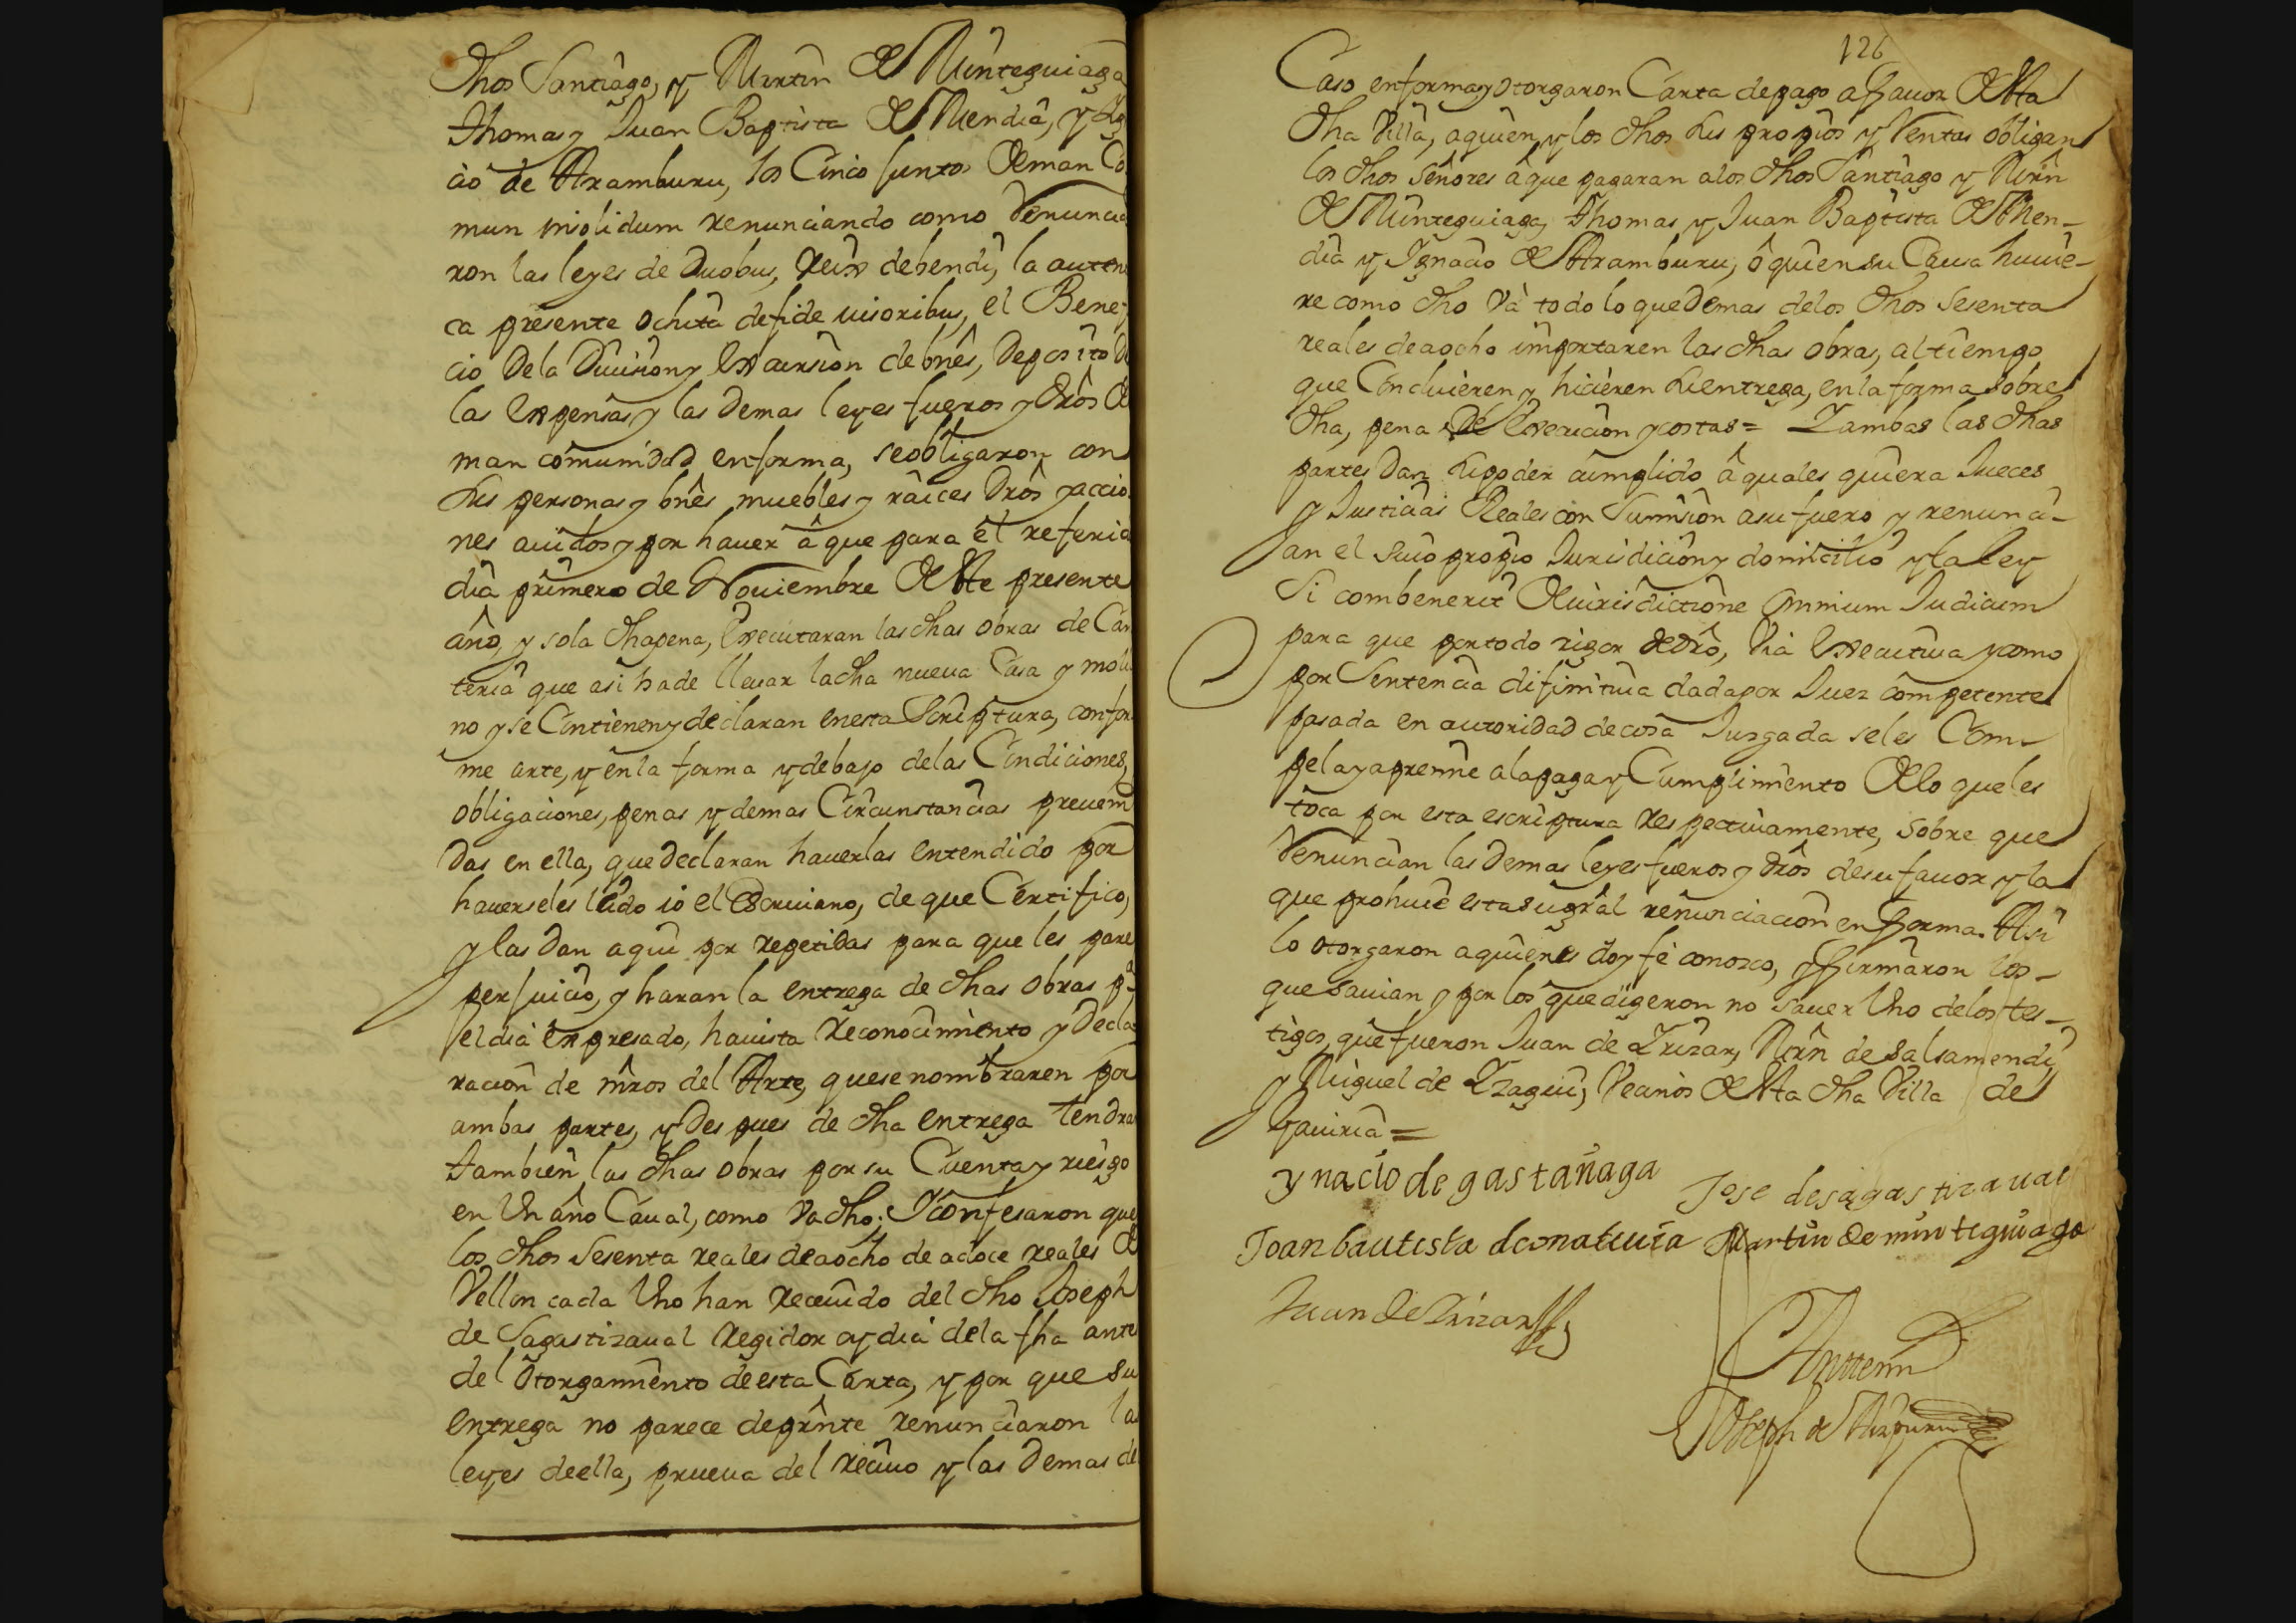 dhos Santiago, y Martin de Minteguiaga
thomas y Juan Baptista de Mendia, y Ig
cio de Aramburu, los Cinco juntos de man Co
mun insolidum renunciando como Renuncia
ron las leyes de Duobus, Reix debendi, la auten
ca presente ochita de fide uisoribus, el Benefi
cio de la Diuision y Excursion de bnes, Deposito de
las Expensas y las demas leyes fueros y dros de
man comunidad en forma, se obligaron con
sus personas y bnes muebles y raices Dros y accio
nes auidos y por hauer â que para el referid
dia primero de Nouiembre de este presente
año, y sola dha pena, Executaran las dhas obras de Can
teria que asi ha de lleuar la dha nueua Casa y moli
no y se Contienen y declaran en esta Scriptura, confor
me arte, y en la forma y debajo de las Condiciones,
obligaciones, penas y demas Circunstancias preueni
das en ella, que declaran hauerlas entendido por
hauerseles leido io el Escriuano, de que Certifico,
y las dan aqui por repetidas para que les pare
perjuicio, y haran la entrega de dhas obras pa
el dia expresado, ha uista Reconocimiento y Decla
racion de mros del Arte, que se nombraren por
ambas partes, y Despues de dha entrega tendran
tambien las dhas obras por su Cuenta y riesgo
en Un año Caual, como Va dho; Y confesaron que
los dhos Sesenta reales de a ocho de a doce reales de
Vellon cada Uno han Receuido del dho Joseph
de Sagastizaual Regidor oy dia de la fha antes
del Otorgamiento de esta Carta, y por que su
entrega no parece de prnte renunciaron las
leyes de ella, prueua del reciuo y las demas del
126
Caso en forma y otorgaron Carta de pago a fauor de esta
dha Villa, a quien y los dhos sus propios y Rentas obligan
los dhos Señores â que pagaran a los dhos Santiago y Mrn
de Minteguiaga, thomas y Juan Baptista de Men-
dia y Ignacio de Aramburu, ô quien su Causa huuie-
re como dho Va todo lo que demas de los dhos Sesenta
reales de a ocho importaren las dhas obras, al tiempo
que Concluieren y hicieren su entrega, en la forma sobre
dha, pena de Execucion y costas = Y ambas las dhas
partes dan su poder cumplido â quales quiera Jueces
y Justicias Reales con Sumision a su fuero y renunci-
an el suio propio Jurisdicion y domicilio y la ley
Si combenerit de iurisdictione omnium Judicum
para que por todo rigor de dro, Via Executiua y como
por Sentencia difinitiua dada por Juez competente
pasada en autoridad de cosa Jusgada se les Com-
pela y apremie a la paga y Cumplimiento de lo que les
toca por esta escriptura Respectiuamente, sobre que
Renuncian las demas leyes fueros y dros de su fauor y la
que prohiue esta su gral renunciacion en forma. Asi
lo otorgaron a quienes doy fe conosco, y firmaron los-
que sauian y por los que digeron no sauer Uno de los tes-
tigos, que fueron Juan de Yrizar, Mrn de Salsamendi
y Miguel de Yzagui, Vecinos de esta dha Villa de
Gauiria =
ynacio de gastañaga
Jose de sagastizaual
Joan bautista de onatiuia
Martin de minteguiaga
Juan de Yrizar
Ante mi
Joseph de Aizpuru